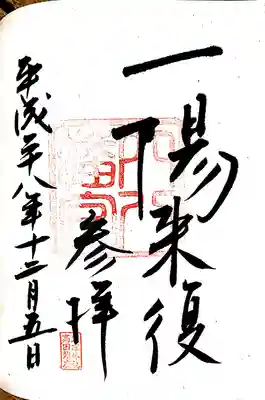 一陽来復
参拝
平成二十八年十二月五日